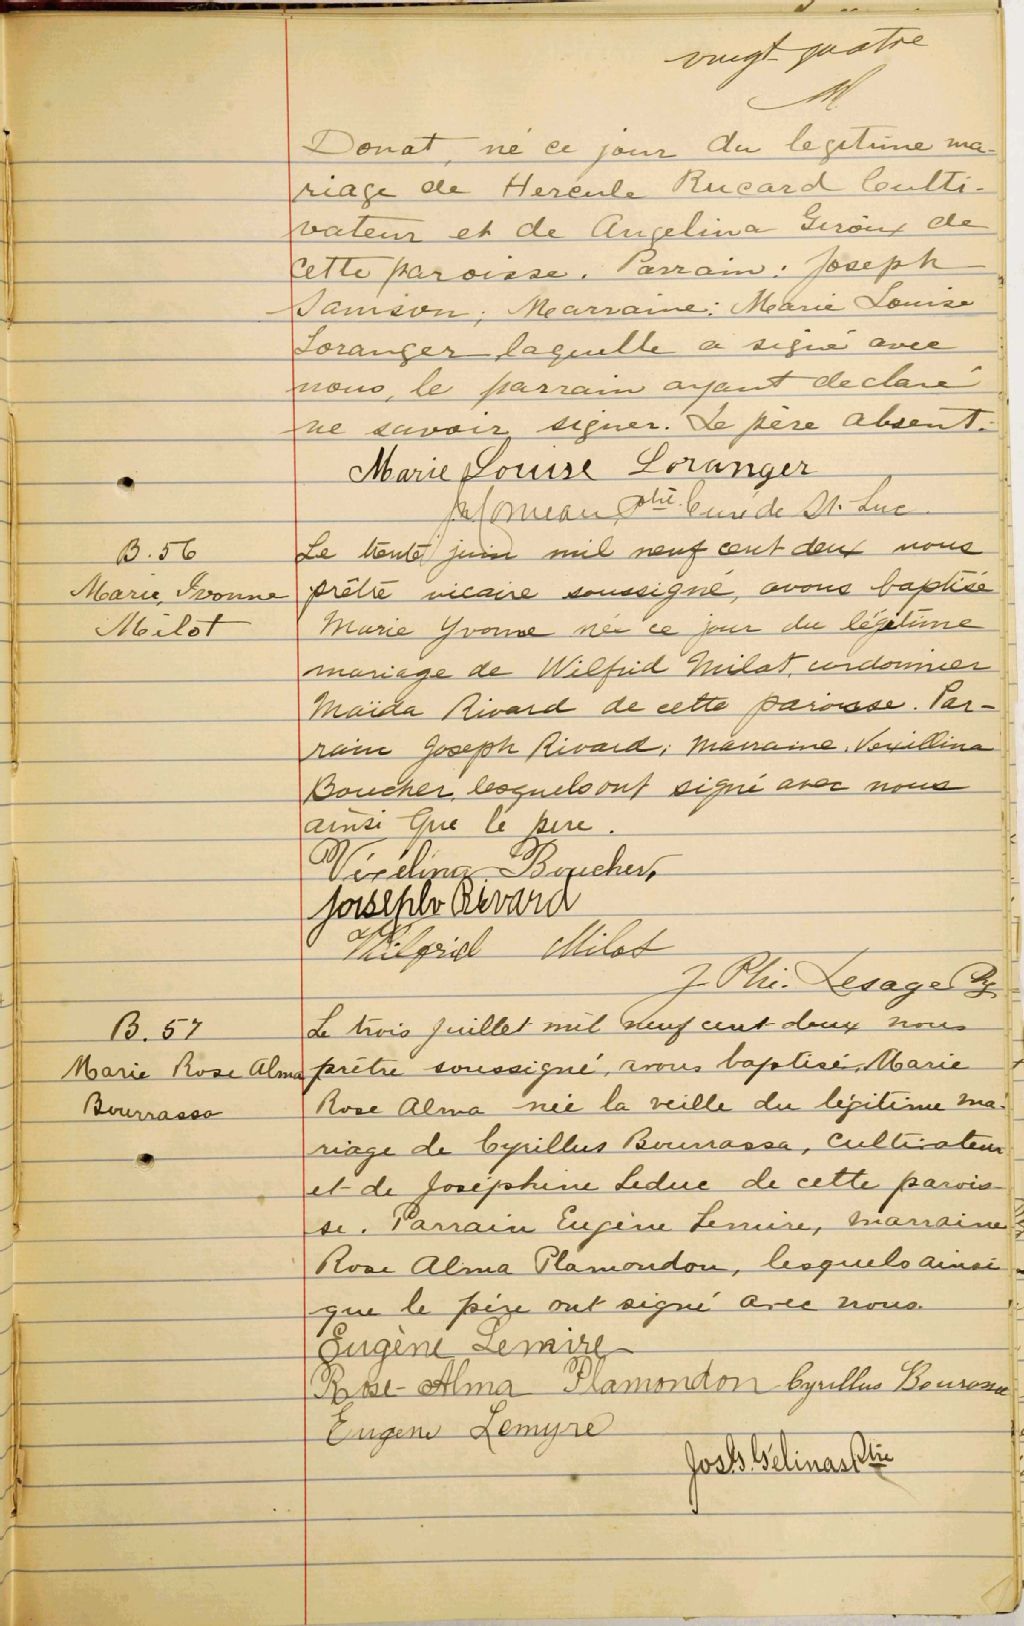 vingt quatre
M
Donat, né ce jour du legitime ma-
riage de Hercule Rucard Culti-
vateur et de Angelina Giroux de
cette paroisse. Parrain: Joseph
Samson; Marraine: Marie Louise
Loranger laquelle a signé avec
nous, le parrain ayant declaré
ne savoir signer. Le père absent.
Marie Louise Loranger
Ptre Curé de St. Luc.
B. 56
Marie, Ivonne
Milot
Le trente juin mil neuf cent deux nous
prêtre vicaire soussigné, avons baptisé
Marie Yvonne née ce jour du légitime
mariage de Wilfrid Milot, cordonnier
Maïda Rivard de cette paroisse. Par-
rain Joseph Rivard; marraine, Vexillina
Boucher, lesquels ont signé avec nous
ainsi que le pere.
Véxélina Boucher,
Joiseph Rivard
Wilfrid Milot
J. Phi. Lesage
B. 57
Marie Rose Alma
Bourrassa
Le trois Juillet mil neuf cent deux nous
prêtre soussigné, avons baptisé, Marie
Rose Alma née la veille du légitime ma-
riage de Cyrillus Bourrassa, cultivateur
et de Joséphine Leduc de cette parois-
se. Parrain Eugène Lemire, marraine
Rose Alma Plamondon, lesquels ainsi
que le père ont signé avec nous.
Eugène Lemire
Rose-Alma Plamondon Cyrillus Bourassa
Eugene Lemyre
Jos G. Gélinas Ptre